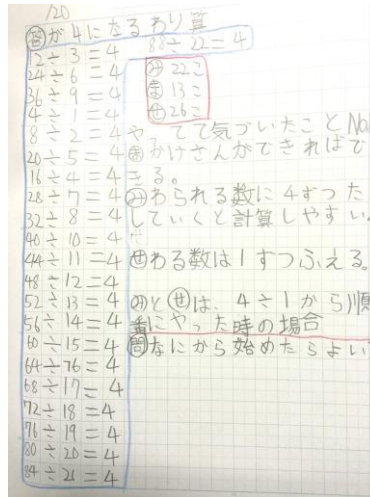 1/20
答が4になるわり算
12÷3=4
88÷22=4
24÷6=4
36÷9=4
4÷1=4
8÷2=4
20÷5=4
16÷4=4
28÷7=4
32÷8=4
40÷10=4
44÷11=4
48÷12=4
52÷13=4
56÷14=4
60÷15=4
64÷16=4
68÷17=4
72÷18=4
76÷19=4
80÷20=4
84÷21=4
22こ
13こ
26こ
や、てて気づいたことNo
かけざんができればで
きる。
わられる数に4ずつた
していくと計算しやすい。
わる数は1ずつふえる。
と は、4÷1から順
番にやった時の場合
問なにから始めたらよい